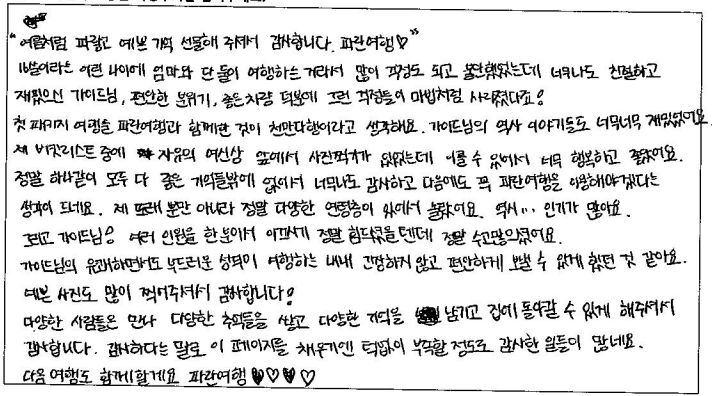 "여름처럼 파랗고 예쁜 기억 선물해 주셔서 감사합니다. 파란여행♡"
16살이라는 어린 나이에 엄마와 단 둘이 여행하는 거라서 많이 걱정도 되고 불안했었는데 너무나도 친절하고
재밌으신 가이드님, 편안한 분위기, 좋은 차량 덕분에 그런 걱정들이 마법처럼 사라졌다죠!
첫 패키지 여행을 파란여행과 함께한 것이 천만다행이라고 생각해요. 가이드님의 역사 이야기들도 너무너무 재밌었어요.
제 버킷리스트 중에 자유의 여신상 앞에서 사진찍기가 있었는데 이룰 수 있어서 너무 행복하고 좋았어요.
정말 하나같이 모두 다 좋은 기억들밖에 없어서 너무나도 감사하고 다음에도 꼭 파란여행을 이용해야겠다는
생각이 드네요. 제 또래 뿐만 아니라 정말 다양한 연령층이 있어서 놀랐어요. 역시... 인기가 많아요.
그리고 가이드님! 여러 인원을 한 분이서 이끄시기 정말 힘드셨을텐데 정말 수고많으셨어요.
가이드님의 유쾌하면서도 부드러운 성격이 여행하는 내내 긴장하지 않고 편안하게 보낼 수 있게 했던 것 같아요.
예쁜 사진도 많이 찍어주셔서 감사합니다!
다양한 사람들을 만나 다양한 추억들을 쌓고 다양한 기억을 남기고 집에 돌아갈 수 있게 해주셔서
감사합니다. 감사하다는 말로 이 페이지를 채우기엔 턱없이 부족할 정도로 감사한 일들이 많네요.
다음 여행도 함께할게요 파란여행 ♥♡♥♡